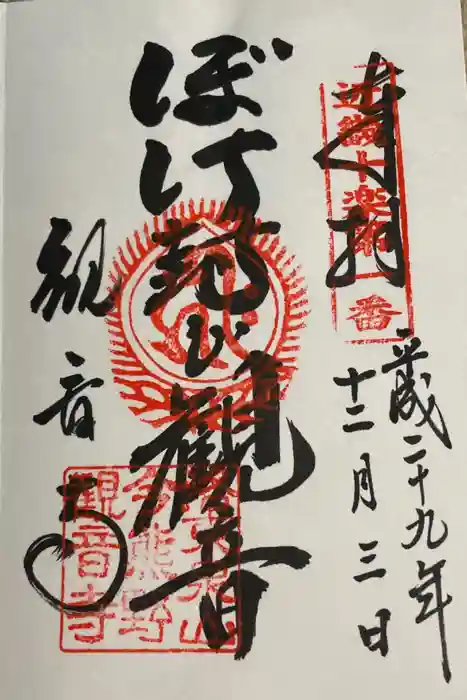 奉拝
近畿十楽観一番
平成二十九年
十二月三日
ぼけ封じ観音
観音寺
今熊野
観音寺